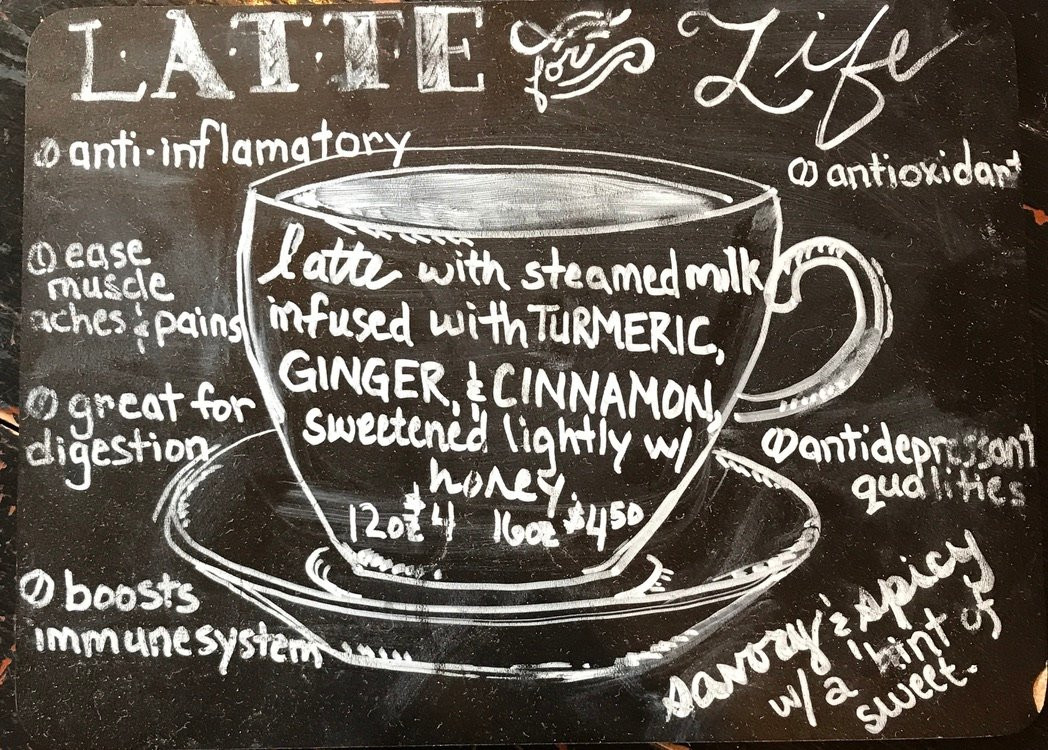 LATTE for Life
anti-inflamatory
antioxidant
ease
muscle
aches & pains
great for
digestion
boosts
immune system
latte with steamed milk
infused with TURMERIC,
GINGER, & CINNAMON,
sweetened lightly w/
honey.
12oz $4 16oz $450
antidepressant
qualities
savory & spicy
w/ a hint of
sweet.